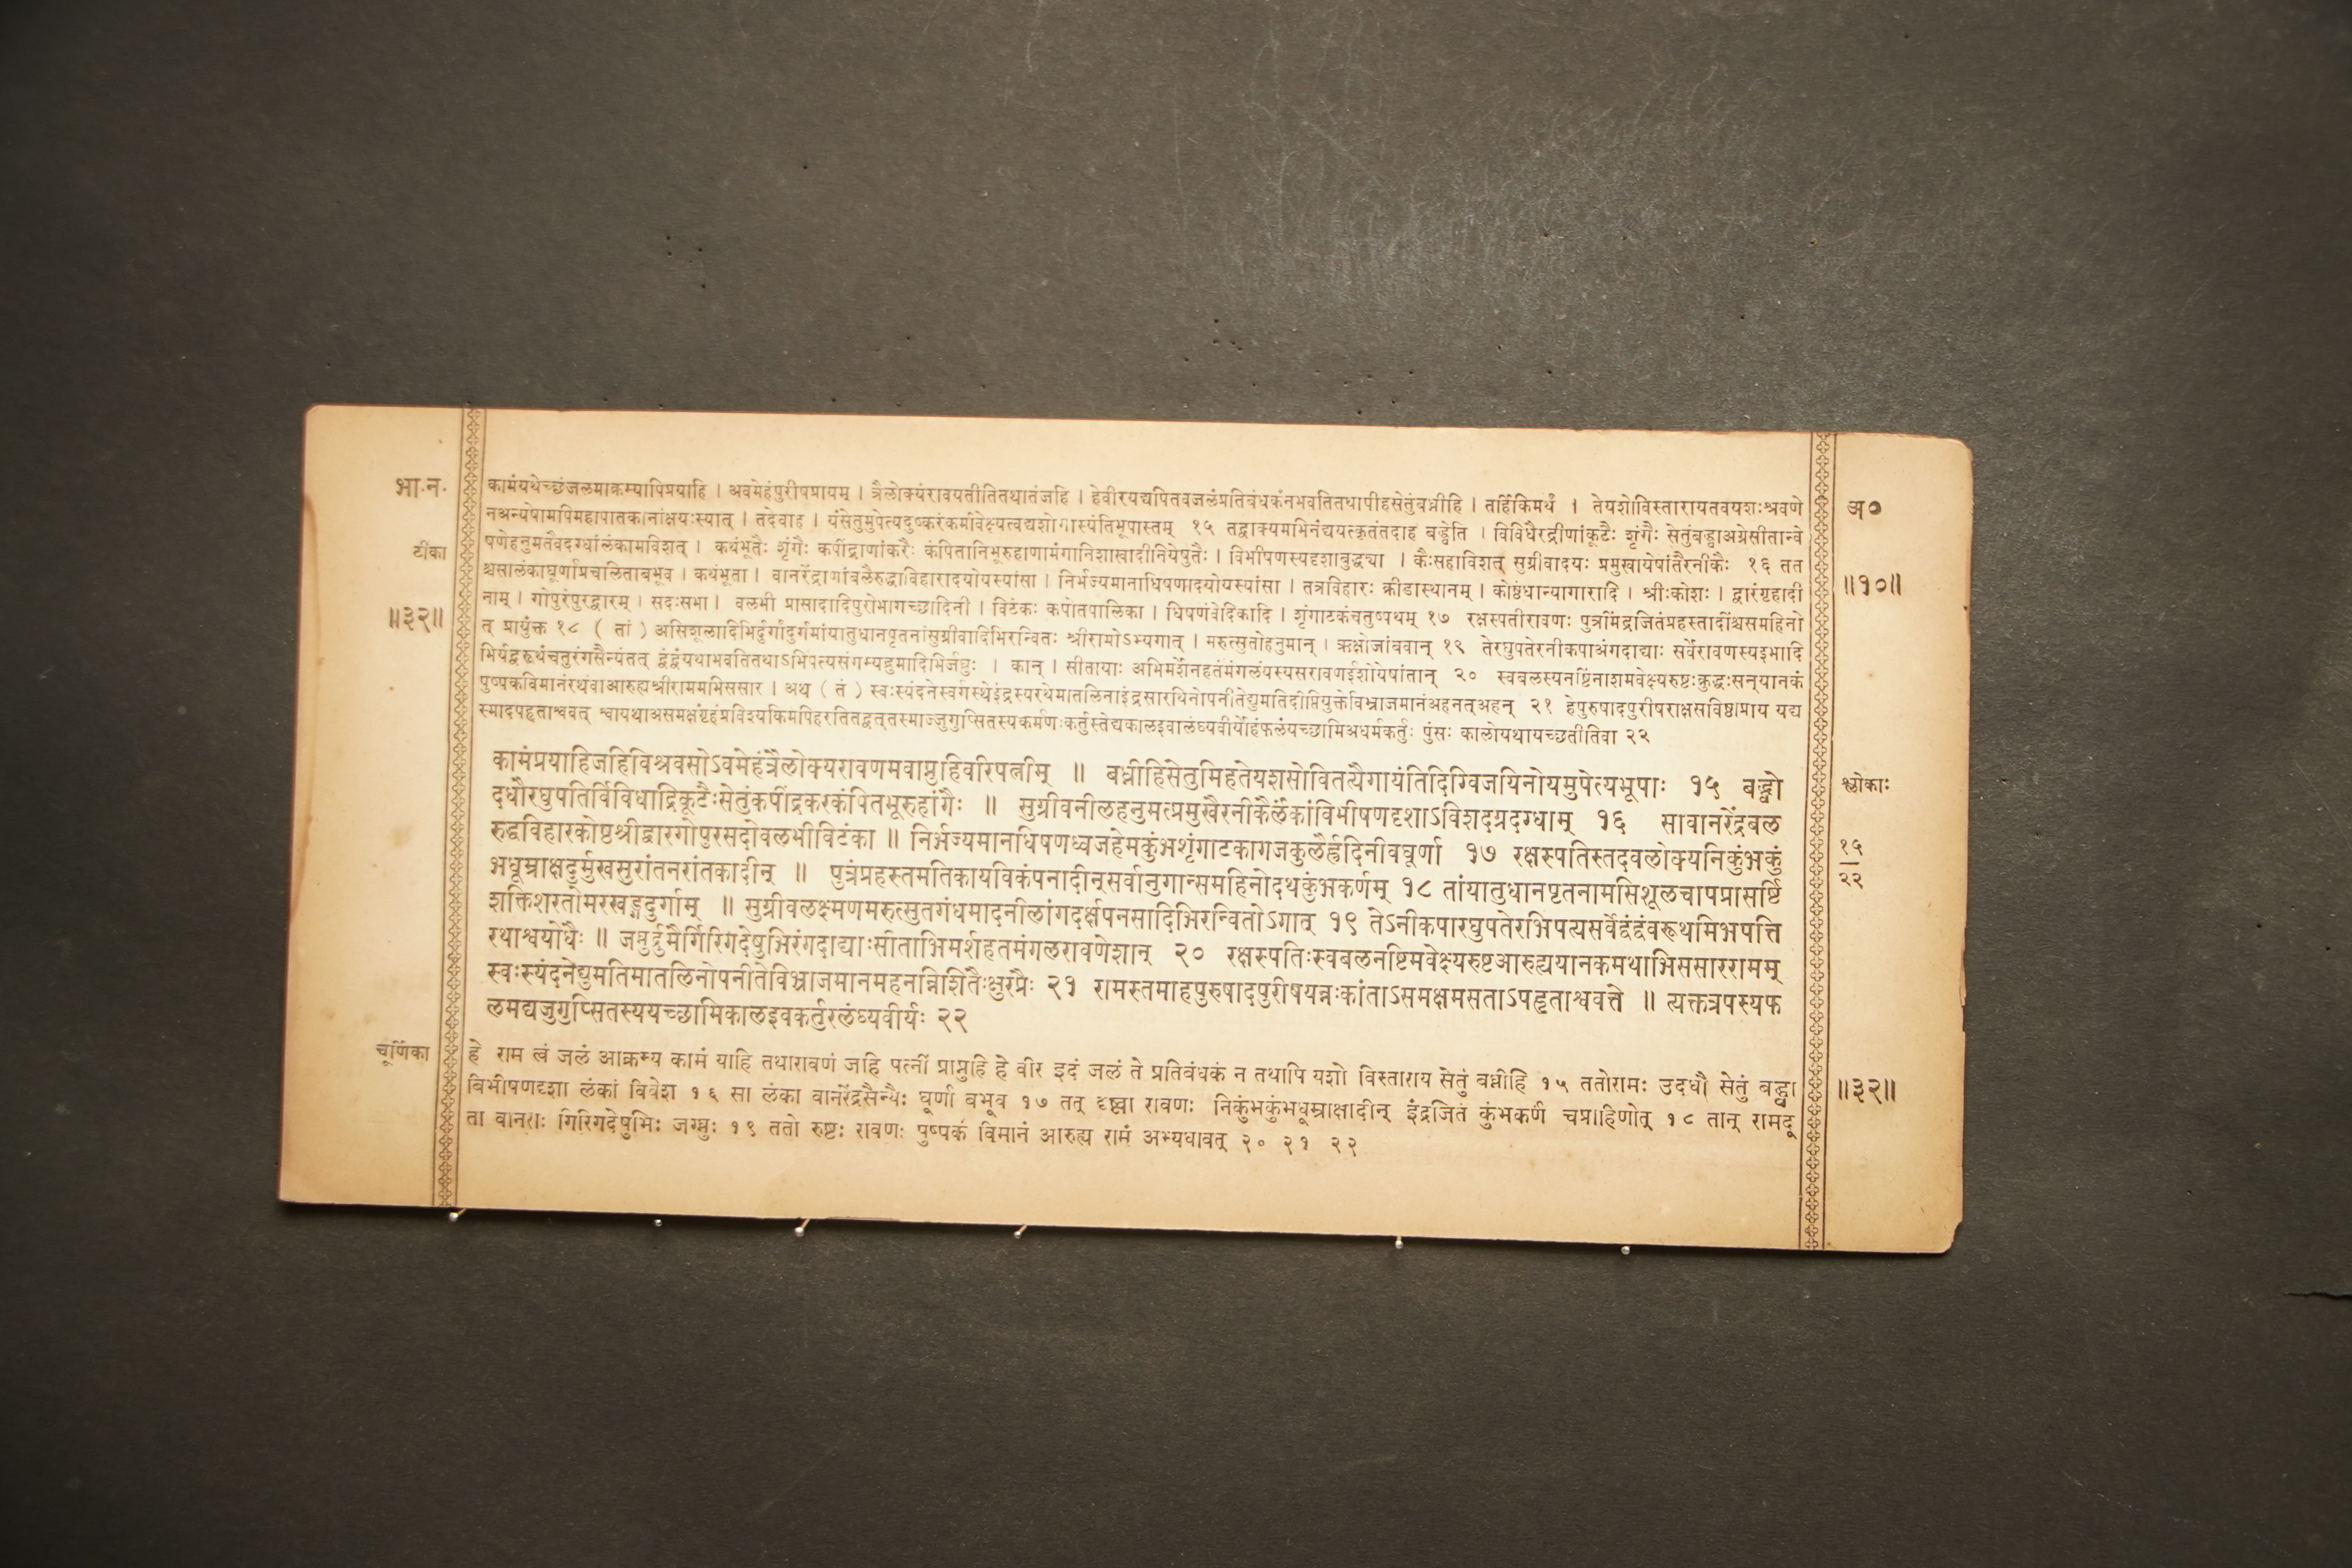 भा.न. कामंयथेच्छंजलमाक्रम्यापिप्रयाहि । अवमेहंपुरीषप्रायम् । त्रैलोक्यंरावयतीतितथातंजहि । हेवीरयद्यपितवजलंप्रतिबंधकंनभवतितथापीहसेतुंबध्नीहि । तर्हिकिमर्थं । तेयशोविस्तारायतवयशःश्रवणे अ०
नअन्येषामपिमहापातकानांक्षयःस्यात् । तदेवाह । यंसेतुमुपेत्यदुष्करंकर्मावेक्ष्यत्वद्यशोगास्यंतिभूपास्तम् १५ तद्वाक्यमभिनंद्ययत्कृतंतदाह बद्ध्वेति । विविधैरद्रीणांकूटैः शृंगैः सेतुंबद्ध्वाअग्रेसीतान्वे
टीका षणेहनुमतैवदग्धांलंकामविशत् । कथंभूतैः शृंगैः कपींद्राणांकरैः कंपितानिभूरुहाणामंगानिशाखादीनियेषुतैः । विभीषणस्यदृशाबुद्ध्या । कैःसहाविशत् सुग्रीवादयः प्रमुखायेषांतैरनीकैः १६ तत
श्चसालंकाघूर्णाप्रचलिताबभूव । कथंभूता । वानरेंद्राणांबलैरुद्धाविहारादयोयस्यांसा । निर्भज्यमानाधिषणादयोयस्यांसा । तत्रविहारः क्रीडास्थानम् । कोष्ठंधान्यागारादि । श्रीःकोशः । द्वारंगृहादी ॥१०॥
॥३२॥ नाम् । गोपुरंपुरद्वारम् । सदःसभा । वलभी प्रासादादिपुरोभागच्छादिनी । विटंकः कपोतपालिका । धिषणंवेदिकादि । शृंगाटकंचतुष्पथम् १७ रक्षस्पतीरावणः पुत्रमिंद्रजितंप्रहस्तादींश्चसमहिनो
त् प्रायुंक्त १८ ( तां ) असिशूलादिभिर्दुर्गांदुर्गमांयातुधानपृतनांसुग्रीवादिभिरन्वितः श्रीरामोऽभ्यगात् । मरुत्सुतोहनुमान् । ऋक्षोजांबवान् १९ तेरघुपतेरनीकपाअंगदाद्याः सर्वेरावणस्यइभादि
भिर्यद्वरूथंचतुरंगसैन्यंतत् द्वंद्वंयथाभवतितथाऽभिपत्यसंगम्यद्रुमादिभिर्जघ्नुः । कान् । सीतायाः अभिमर्शेनहतंमंगलंयस्यसरावणईशोयेषांतान् २० स्वबलस्यनष्टिंनाशमवेक्ष्यरुष्टःक्रुद्धःसन्यानकं
पुष्पकविमानंरथंवाआरुह्यश्रीराममभिससार । अथ ( तं ) स्वःस्यंदनेस्वर्गस्थेइंद्रस्यरथेमातलिनाइंद्रसारथिनोपनीतेद्युमतिदीप्तियुक्तेविभ्राजमानंअहनत्अहन् २१ हेपुरुषादपुरीषराक्षसविष्ठाप्राय यद्य
स्मादपहृताश्ववत् श्वायथाअसमक्षंगृहंप्रविश्यकिमपिहरतितद्वत्तस्माज्जुगुप्सितस्यकर्मणःकर्तुस्तेद्यकालइवालंघ्यवीर्योहंफलंयच्छामिअधर्मकर्तुः पुंसः कालोयथायच्छतीतिवा २२
कामंप्रयाहिजहिविश्रवसोऽवमेहंत्रैलोक्यरावणमवाप्नुहिवीरपत्नीम् ॥ बध्नीहिसेतुमिहतेयशसोवितत्यैगायंतिदिग्विजयिनोयमुपेत्यभूपाः १५ बद्ध्वो श्लोकाः
दधौरघुपतिर्विविधाद्रिकूटैःसेतुंकपींद्रकरकंपितभूरुहांगैः ॥ सुग्रीवनीलहनुमत्प्रमुखैरनीकैर्लंकांविभीषणदृशाऽविशदग्रदग्धाम् १६ सावानरेंद्रबल
रुद्धविहारकोष्ठश्रीद्वारगोपुरसदोवलभीविटंका ॥ निर्भज्यमानधिषणध्वजहेमकुंभशृंगाटकागजकुलैर्ह्रदिनीवघूर्णा १७ रक्षस्पतिस्तदवलोक्यनिकुंभकुं १५
भधूम्राक्षदुर्मुखसुरांतनरांतकादीन् ॥ पुत्रंप्रहस्तमतिकायविकंपनादीन्सर्वानुगान्समहिनोदथकुंभकर्णम् १८ तांयातुधानपृतनामसिशूलचापप्रासर्ष्टि २२
शक्तिशरतोमरखड्गदुर्गाम् ॥ सुग्रीवलक्ष्मणमरुत्सुतगंधमादनीलांगदर्क्षपनसादिभिरन्वितोऽगात् १९ तेऽनीकपारघुपतेरभिपत्यसर्वेद्वंद्वंवरूथमिभपत्ति
रथाश्वयोधैः ॥ जघ्नुर्द्रुमैर्गिरिगदेषुभिरंगदाद्याःसीताभिमर्शहतमंगलरावणेशान् २० रक्षस्पतिःस्वबलनष्टिमवेक्ष्यरुष्टआरुह्ययानकमथाभिससाररामम्
स्वःस्यंदनेद्युमतिमातलिनोपनीतेविभ्राजमानमहनन्निशितैःक्षुरप्रैः २१ रामस्तमाहपुरुषादपुरीषयन्नःकांताऽसमक्षमसताऽपहृताश्ववत्ते ॥ त्यक्तत्रपस्यफ
लमद्यजुगुप्सितस्ययच्छामिकालइवकर्तुरलंघ्यवीर्यः २२
चूर्णिका हे राम त्वं जलं आक्रम्य कामं याहि तथारावणं जहि पत्नीं प्राप्नुहि हे वीर इदं जलं ते प्रतिबंधकं न तथापि यशो विस्ताराय सेतुं बध्नीहि १५ ततोरामः उदधौ सेतुं बद्ध्वा ॥३२॥
बिभीषणदृशा लंकां विवेश १६ सा लंका वानरेंद्रसैन्यैः घूर्णा बभूव १७ तत् दृष्ट्वा रावणः निकुंभकुंभधूम्राक्षादीन् इंद्रजितं कुंभकर्णं चप्राहिणोत् १८ तान् रामदू
ता वानराः गिरिगदेषुभिः जग्मुः १९ ततो रुष्टः रावणः पुष्पकं विमानं आरुह्य रामं अभ्यधावत् २० २१ २२